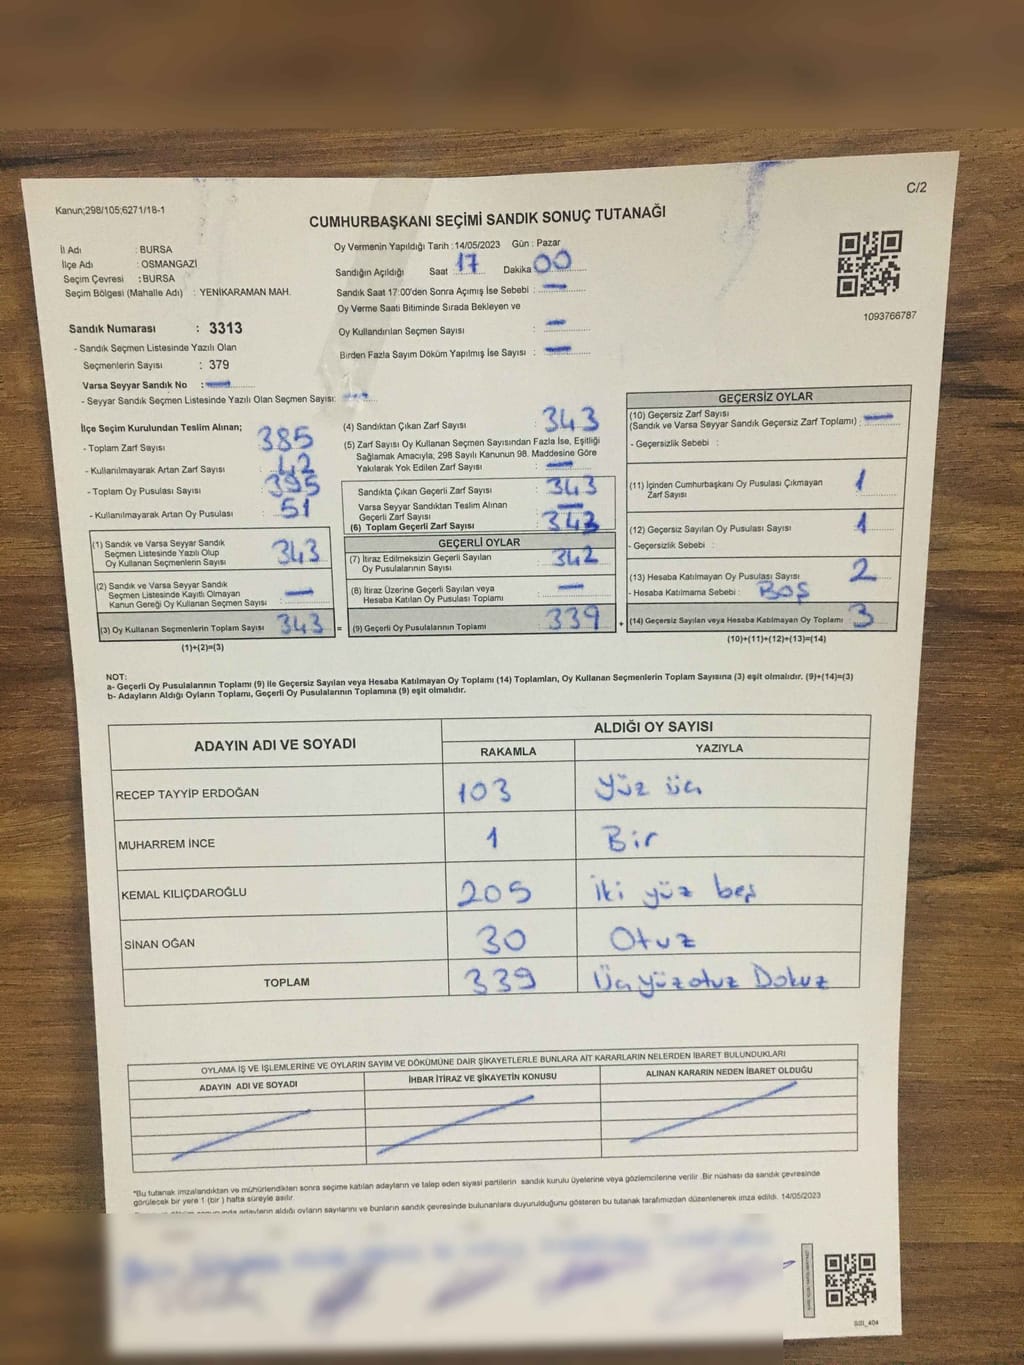 C/2
Kanun;298/105;6271/18-1
CUMHURBAŞKANI SEÇİMİ SANDIK SONUÇ TUTANAĞI
İl Adı : BURSA
İlçe Adı : OSMANGAZİ
Seçim Çevresi : BURSA
Seçim Bölgesi (Mahalle Adı) : YENİKARAMAN MAH.
Sandık Numarası : 3313
- Sandık Seçmen Listesinde Yazılı Olan
Seçmenlerin Sayısı : 379
Varsa Seyyar Sandık No :
- Seyyar Sandık Seçmen Listesinde Yazılı Olan Seçmen Sayısı:
Oy Vermenin Yapıldığı Tarih :14/05/2023 Gün : Pazar
Sandığın Açıldığı Saat 17 Dakika 00
Sandık Saat 17:00'den Sonra Açımış İse Sebebi :
Oy Verme Saati Bitiminde Sırada Bekleyen ve
Oy Kullandırılan Seçmen Sayısı :
Birden Fazla Sayım Döküm Yapılmış İse Sayısı :
1093766787
İlçe Seçim Kurulundan Teslim Alınan;
- Toplam Zarf Sayısı : 385
- Kullanılmayarak Artan Zarf Sayısı : 42
- Toplam Oy Pusulası Sayısı : 395
- Kullanılmayarak Artan Oy Pusulası : 51
(1) Sandık ve Varsa Seyyar Sandık
Seçmen Listesinde Yazılı Olup
Oy Kullanan Seçmenlerin Sayısı : 343
(2) Sandık ve Varsa Seyyar Sandık
Seçmen Listesinde Kayıtlı Olmayan
Kanun Gereği Oy Kullanan Seçmen Sayısı :
(3) Oy Kullanan Seçmenlerin Toplam Sayısı : 343 =
(1)+(2)=(3)
(4) Sandıktan Çıkan Zarf Sayısı : 343
(5) Zarf Sayısı Oy Kullanan Seçmen Sayısından Fazla İse, Eşitliği
Sağlamak Amacıyla, 298 Sayılı Kanunun 98. Maddesine Göre
Yakılarak Yok Edilen Zarf Sayısı :
Sandıkta Çıkan Geçerli Zarf Sayısı : 343
Varsa Seyyar Sandıktan Teslim Alınan
Geçerli Zarf Sayısı
(6) Toplam Geçerli Zarf Sayısı : 343
GEÇERLİ OYLAR
(7) İtiraz Edilmeksizin Geçerli Sayılan
Oy Pusulalarının Sayısı : 342
(8) İtiraz Üzerine Geçerli Sayılan veya
Hesaba Katılan Oy Pusulası Toplamı :
(9) Geçerli Oy Pusulalarının Toplamı : 339 +
GEÇERSİZ OYLAR
(10) Geçersiz Zarf Sayısı
(Sandık ve Varsa Seyyar Sandık Geçersiz Zarf Toplamı) :
- Geçersizlik Sebebi :
(11) İçinden Cumhurbaşkanı Oy Pusulası Çıkmayan
Zarf Sayısı : 1
(12) Geçersiz Sayılan Oy Pusulası Sayısı : 1
- Geçersizlik Sebebi :
(13) Hesaba Katılmayan Oy Pusulası Sayısı 2
- Hesaba Katılmama Sebebi : BOŞ
(14) Geçersiz Sayılan veya Hesaba Katılmayan Oy Toplamı : 3
(10)+(11)+(12)+(13)=(14)
NOT:
a- Geçerli Oy Pusulalarının Toplamı (9) ile Geçersiz Sayılan veya Hesaba Katılmayan Oy Toplamı (14) Toplamları, Oy Kullanan Seçmenlerin Toplam Sayısına (3) eşit olmalıdır. (9)+(14)=(3)
b- Adayların Aldığı Oyların Toplamı, Geçerli Oy Pusulalarının Toplamına (9) eşit olmalıdır.
ADAYIN ADI VE SOYADI
ALDIĞI OY SAYISI
RAKAMLA YAZIYLA
RECEP TAYYİP ERDOĞAN 103 Yüz üç
MUHARREM İNCE 1 Bir
KEMAL KILIÇDAROĞLU 205 İki yüz beş
SİNAN OĞAN 30 Otuz
TOPLAM 339 Üçyüzotuz Dokuz
OYLAMA İŞ VE İŞLEMLERİNE VE OYLARIN SAYIM VE DÖKÜMÜNE DAİR ŞİKAYETLERLE BUNLARA AİT KARARLARIN NELERDEN İBARET BULUNDUKLARI
ADAYIN ADI VE SOYADI İHBAR İTİRAZ VE ŞİKAYETİN KONUSU ALINAN KARARIN NEDEN İBARET OLDUĞU
"Bu tutanak imzalandıktan ve mühürlendikten sonra seçime katılan adayların ve talep eden siyasi partilerin sandık kurulu üyelerine veya gözlemcilerine verilir .Bir nüshası da sandık çevresinde
görülecek bir yere 1 (bir ) hafta süreyle asılır.
adayların aldığı oyların sayılarını ve bunların sandık çevresinde bulunanlara duyurulduğunu gösteren bu tutanak tarafımızdan düzenlenerek imza edildi. 14/05/2023